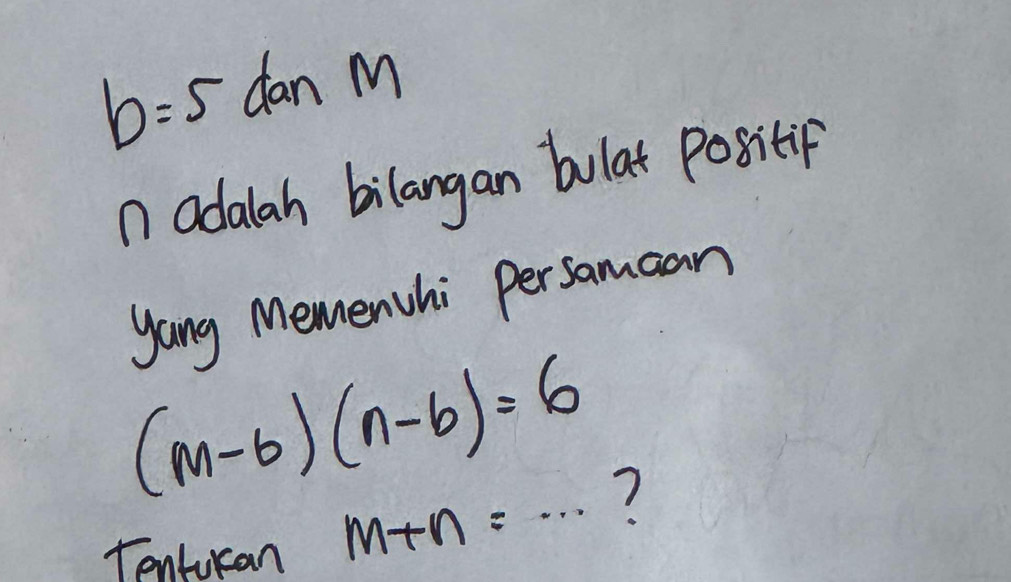 b=5 dan M
n adalah bilangan bulat positif
yang Memenuhi Persamaan
(m-b)(n-b)=6
Tentukan m+n = ... ?